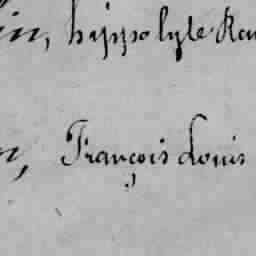 in, hippolyte
n, François Louis